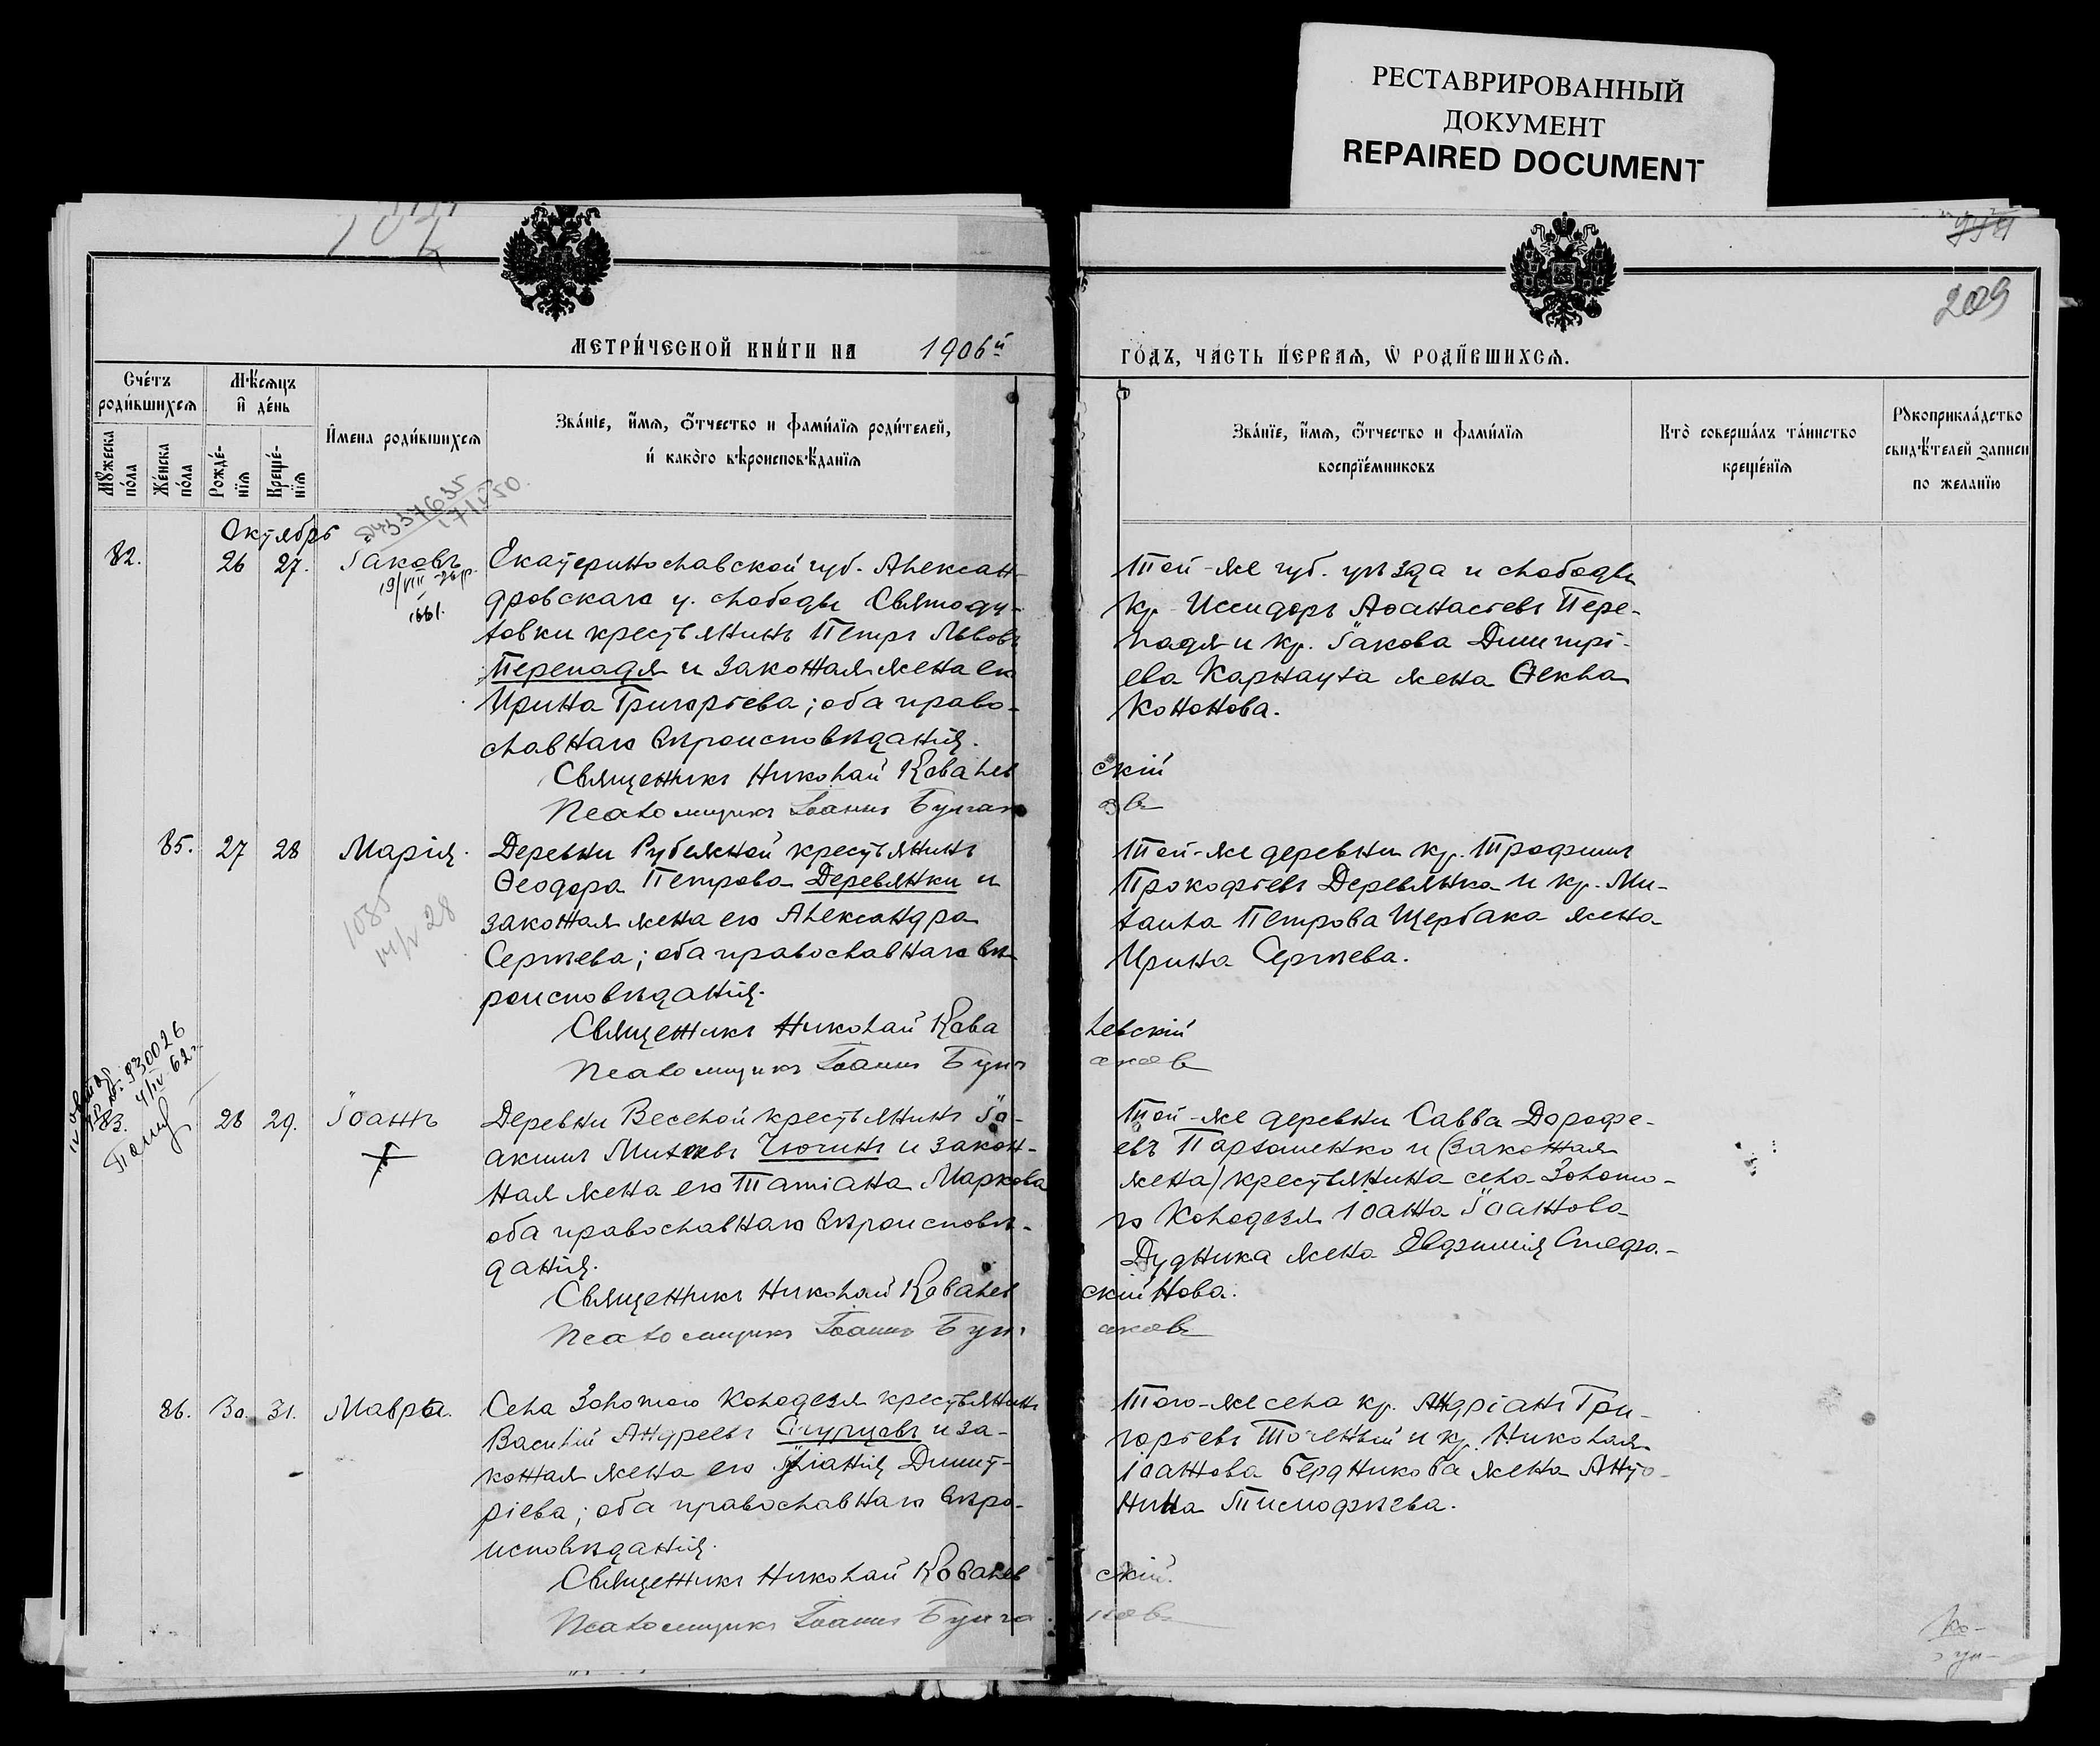 РЕСТАВРИРОВАННЫЙ
ДОКУМЕНТ
REPAIRED DOCUMENT
209
МЕТРИ́ЧЕСКОЙ КНИ́ГИ НА 1906й
ГО́ДЪ, ЧА́СТЬ ПЕ́РВАѦ, Ѡ РОДИ́ВШИХСѦ.
Сче́тъ роди́вшихсѧ
Мꙋ́жеска по́ла
Же́нска по́ла
Мѣ́сѧцъ и де́нь
Рожде́нїѧ
Креще́нїѧ
И҆мена роди́вшихсѧ
Зва́нїе, и҆́мѧ, ѻ҆́тчество и фами́лїѧ роди́телей,
и҆ како́гѡ вѣроисповѣ́данїѧ
Зва́нїе, и҆́мѧ, ѻ҆́тчество и фами́лїѧ
воспрїе́мниковъ
Кто̀ соверша́лъ та́инство
креще́нїѧ
Рꙋкоприкла́дство
свидѣ́телей записи
по жела́нїю
Октябрь
82. 26 27. Іаковъ
Екатеринославской губ. Алексан-
дровскаго у. слободы Святоду-
ховки крестьянинъ Петръ Львовъ
Перепадя и законная жена его
Ирина Григорьева; оба право-
славнаго вѣроисповѣданія.
Священникъ Николай Ковалевскій
Псаломщикъ Іоаннъ Булгаковъ
Той-же губ. уѣзда и слободы
кр. Исидоръ Аѳанасьевъ Пере-
падя и кр. Іакова Димитрі-
ева Карнауха жена Ѳекла
Кононова.
85. 27 28 Марія.
1085
Деревни Рубежной крестьянинъ
Ѳеодора Петрова Деревянки и
законная жена его Александра
Сергѣева; оба православнаго вѣ-
роисповѣданія.
Священникъ Николай Ковалевскій
Псаломщикъ Іоаннъ Булгаковъ
Той-же деревни кр. Трофимъ
Прокофьевъ Деревянко и кр. Ми-
хаила Петрова Щербака жена
Ирина Сергѣева.
83. 28 29. Іоаннъ
Деревни Веселой крестьянинъ Іо-
акимъ Михеевъ Чючинъ и закон-
ная жена его Татіана Маркова
оба православнаго вѣроисповѣ-
данія.
Священникъ Николай Ковалевскій
Псаломщикъ Іоаннъ Булгаковъ
Той-же деревни Савва Дорофе-
евъ Пархоменко и (законная
жена) крестьянина села Золото-
го Колодезя Іоанна Іоаннова
Дудника жена Евфимія Стефа-
нова.
86. 30. 31. Мавра.
Села Золотого Колодезя крестьянинъ
Василій Андреевъ и за-
конная жена его Іуліанія Димит-
ріева; оба православнаго вѣро-
исповѣданія.
Священникъ Николай Ковалевскій.
Псаломщикъ Іоаннъ Булгаковъ
Того-же села кр. Андріанъ Гри-
горьевъ Точеный и кр. Николая
Іоаннова Бердникова жена Анто-
нина Тимофѣева.